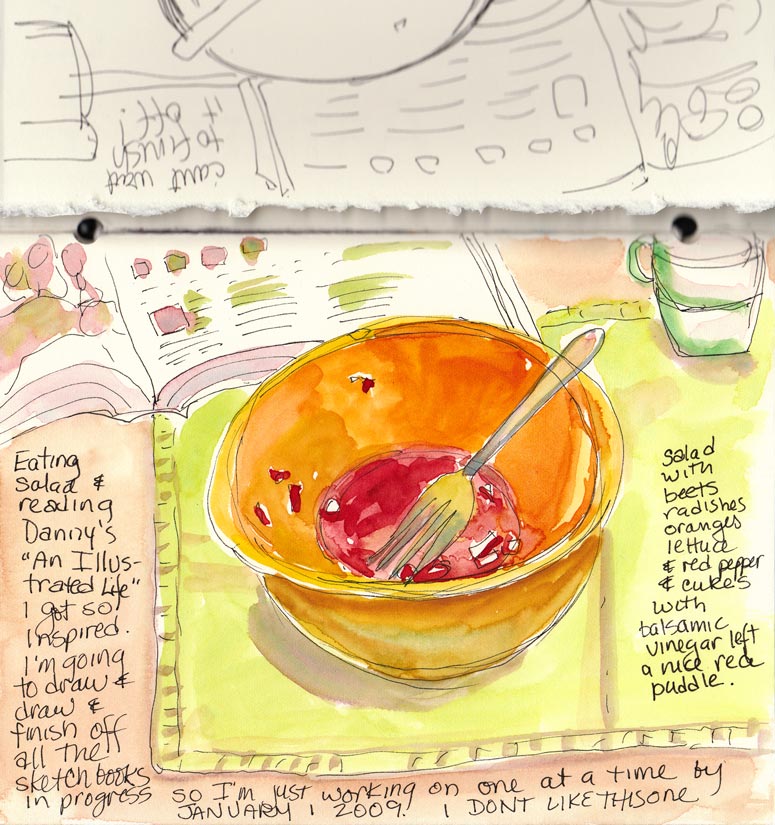 cant wait
to finish
it off!
Eating
salad &
reading
Danny's
"An Illus-
trated Life"
I got so
inspired.
I'm going
to draw &
draw &
finish off
all the
sketchbooks
in progress
so I'm just working on one at a time by
JANUARY 1 2009. I DONT LIKE THIS ONE
Salad
with
beets
radishes
oranges
lettuce
& red pepper
& cukes
with
balsamic
vinegar left
a nice red
puddle.